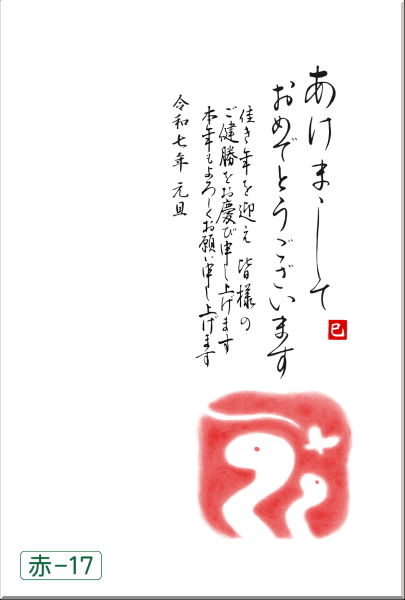 あけまして
おめでとうございます
巳
佳き年を迎え 皆様の
ご健勝をお慶び申し上げます
本年もよろしくお願い申し上げます
令和七年 元旦
赤-17